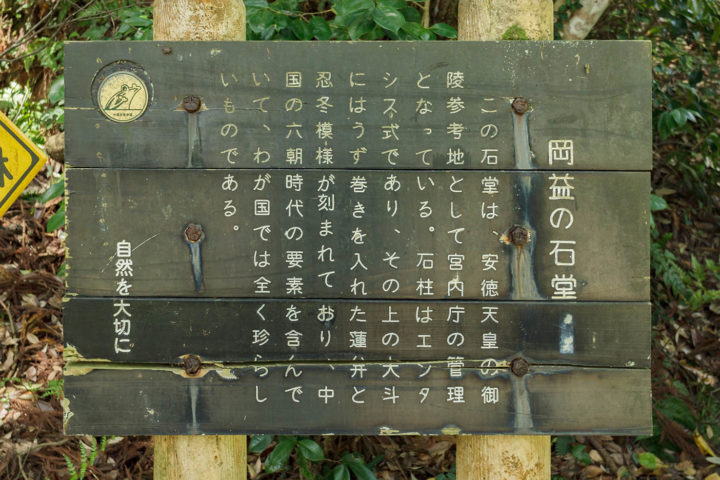 岡益の石堂
この石堂は、安徳天皇の御
陵参考地として宮内庁の管理
となっている。石柱はエンタ
シス式であり、その上の大斗
にはうず巻きを入れた蓮弁と
忍冬模様が刻まれており、中
国の六朝時代の要素を含んで
いて、わが国では全く珍らし
いものである。
自然を大切に